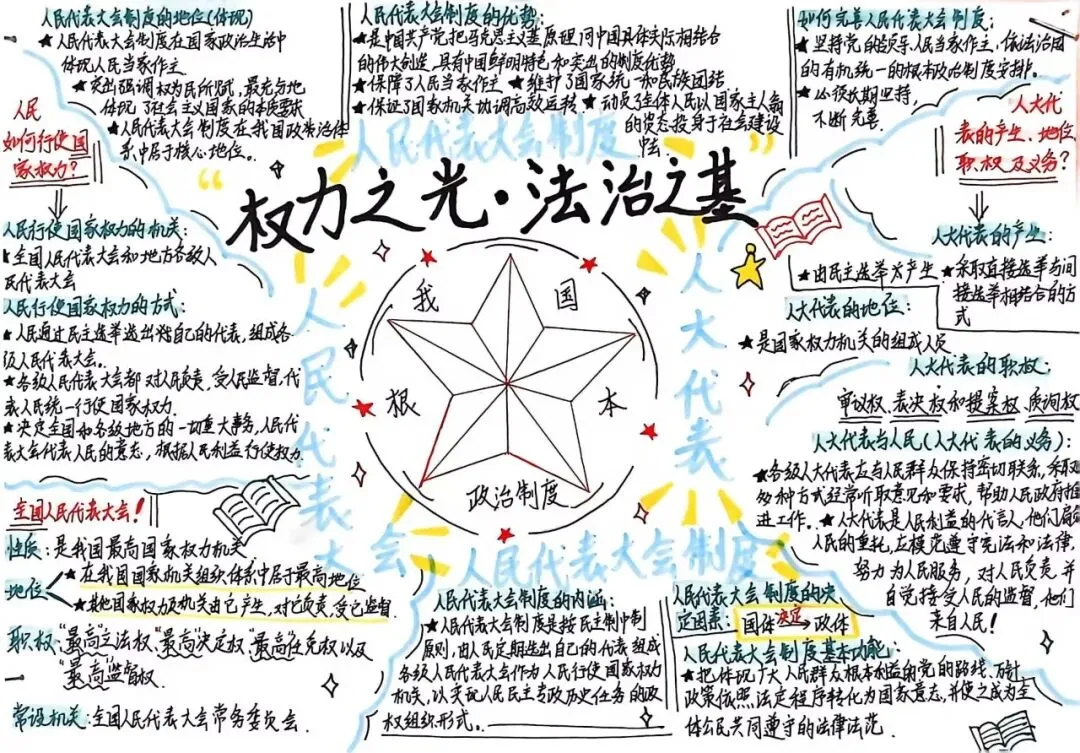 人民代表大会制度的地位(体现)
★人民代表大会制度在国家政治生活中
体现人民当家作主
★突出强调权为民所赋,最充分地
体现了社会主义国家的本质要求
★人民代表大会制度在我国政治体
系中居于核心地位。
人民代表大会制度的优势:
★是中国共产党把马克思主义基本原理同中国具体实际相结合
的伟大创造,具有中国鲜明特色和突出的制度优势
★保障了人民当家作主 ★维护了国家统一和民族团结
★保证了国家机关协调高效运转 ★动员了全体人民以国家主人翁
的姿态投身于社会建设
中去
如何完善人民代表大会制度:
★坚持党的领导、人民当家作主、依法治国
的有机统一的根本政治制度安排。
★必须长期坚持,
不断完善
人民
如何行使国
家权力?
人大代
表的产生、地位
职权及义务?
人民代表大会制度
“权力之光·法治之基”
我国
根本
政治制度
人民代表大会
人大代表
人民代表大会制度
人民行使国家权力的机关:
★全国人民代表大会和地方各级人
民代表大会
人民行使国家权力的方式:
★人民通过民主选举选出代自己的代表,组成各
级人民代表大会。
★各级人民代表大会都对人民负责,受人民监督,代
表人民统一行使国家权力
★决定全国和各级地方的一切重大事务,人民代
表大会代表人民的意志,根据人民利益行使权力
人大代表的产生:
★由民主选举为产生
★采取直接选举与间
接选举相结合的方
式
人大代表的地位:
★是国家权力机关的组成人员
人大代表的职权:
审议权、表决权和提案权、质询权
人大代表与人民(人大代表的义务):
★各级人大代表应与人民群众保持密切联系,采取
多种方式经常听取意见和要求,帮助人民政府推
进工作。★人大代表是人民利益的代言人,他们肩负
人民的重托,应模范遵守宪法和法律,
努力为人民服务,对人民负责,并
自觉接受人民的监督,他们
来自人民!
全国人民代表大会!
性质:是我国最高国家权力机关
地位
★在我国国家机关组织体系中居于最高地位
★其他国家权力机关由它产生,对它负责,受它监督
职权:“最高”立法权、“最高”决定权、“最高”任免权以及
“最高”监督权
常设机关:全国人民代表大会常务委员会.
人民代表大会制度的内涵:
★人民代表大会制度是按民主集中制
原则,由人民定期选出自己的代表组成
各级人民代表大会作为人民行使国家权力
机关,以实现人民民主专政历史任务的政
权组织形式。
人民代表大会制度的决
定因素:国体决定→政体
人民代表大会制度基本功能:
★把体现广大人民群众根本利益的党的路线、方针
政策依照法定程序转化为国家意志,并使之成为全
体公民共同遵守的法律法范